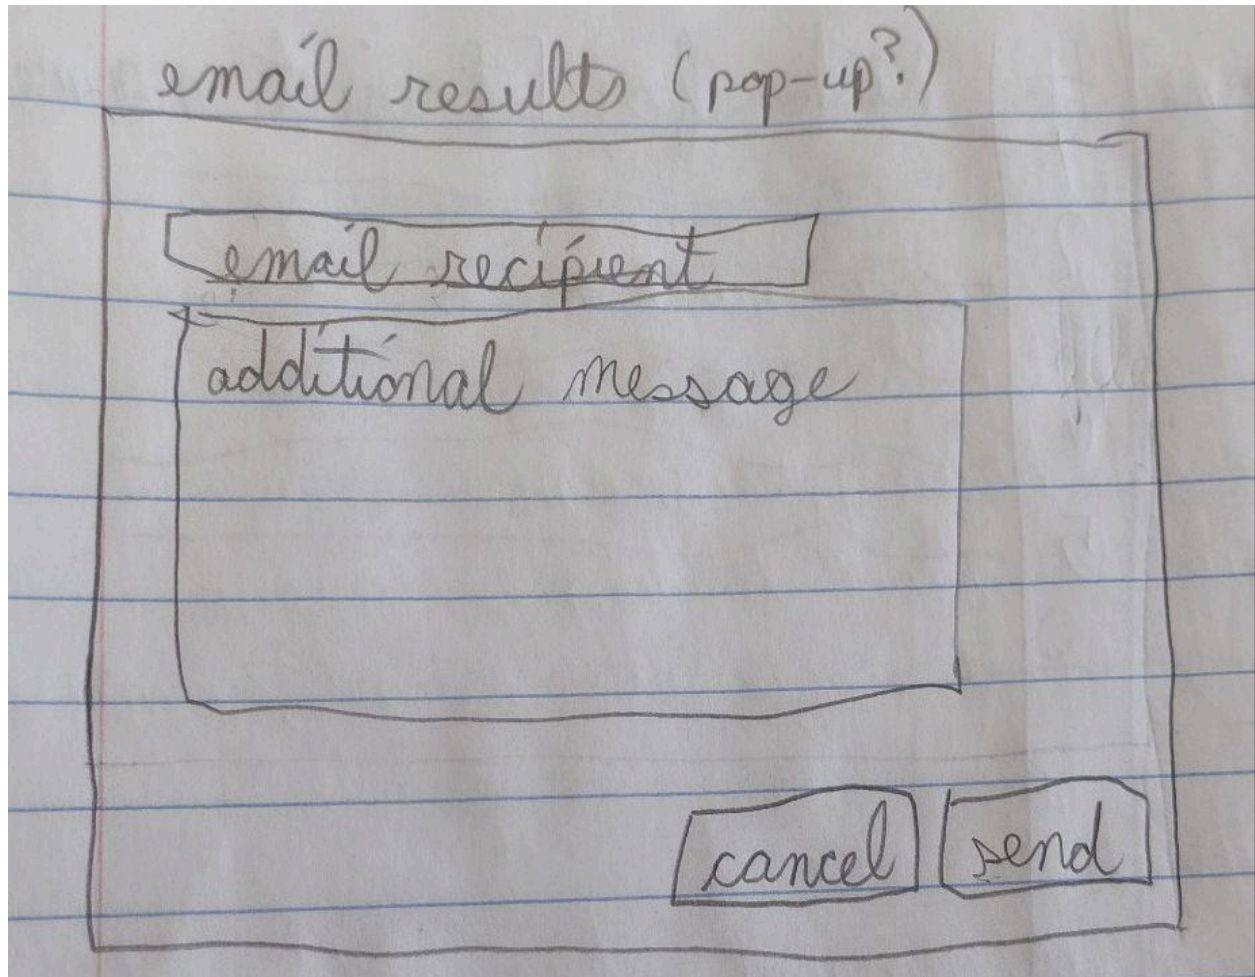 email results (pop-up?)
email recipient
additional message
cancel send